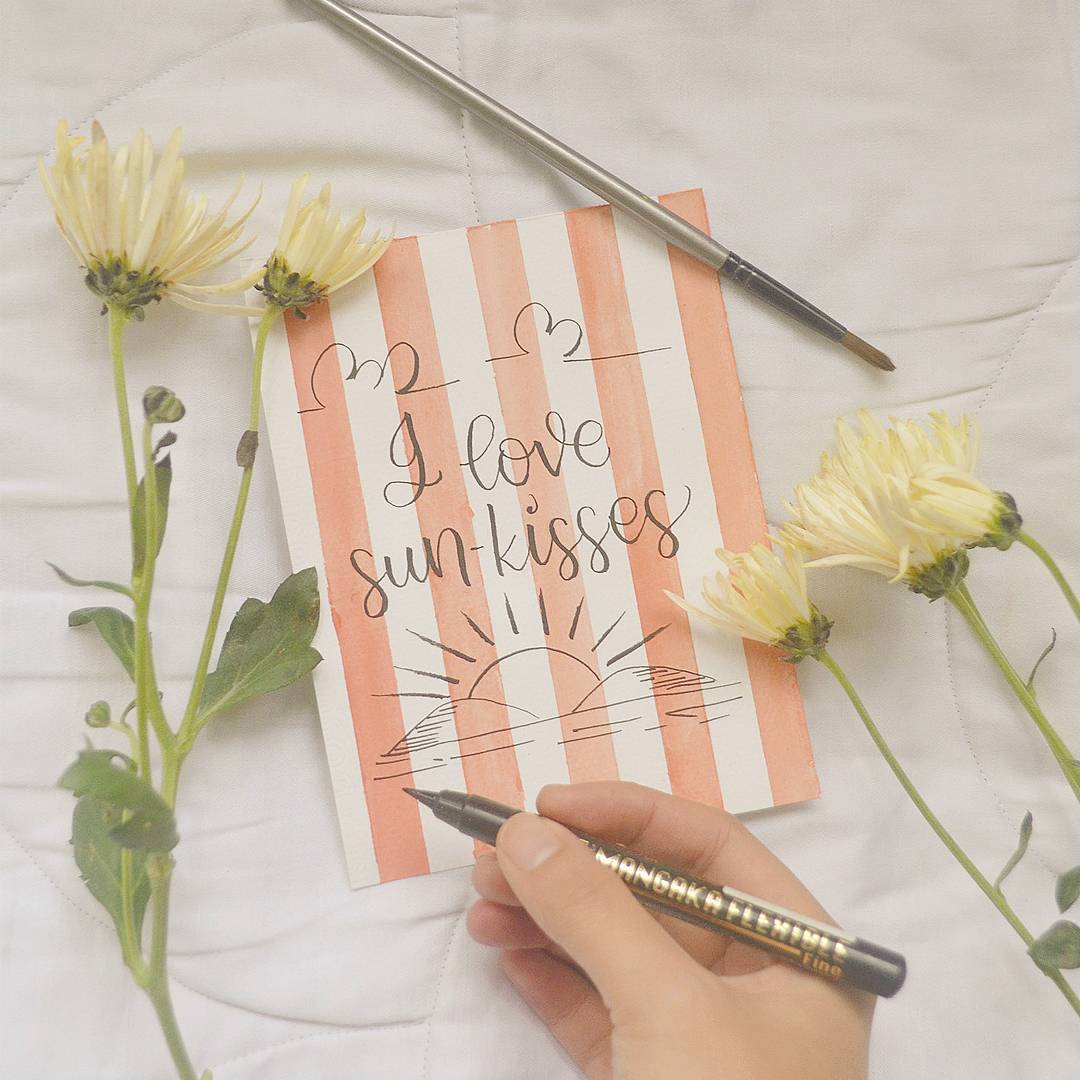 I love
sun-kisses
MANGAKA FLEXIBLE
Fine